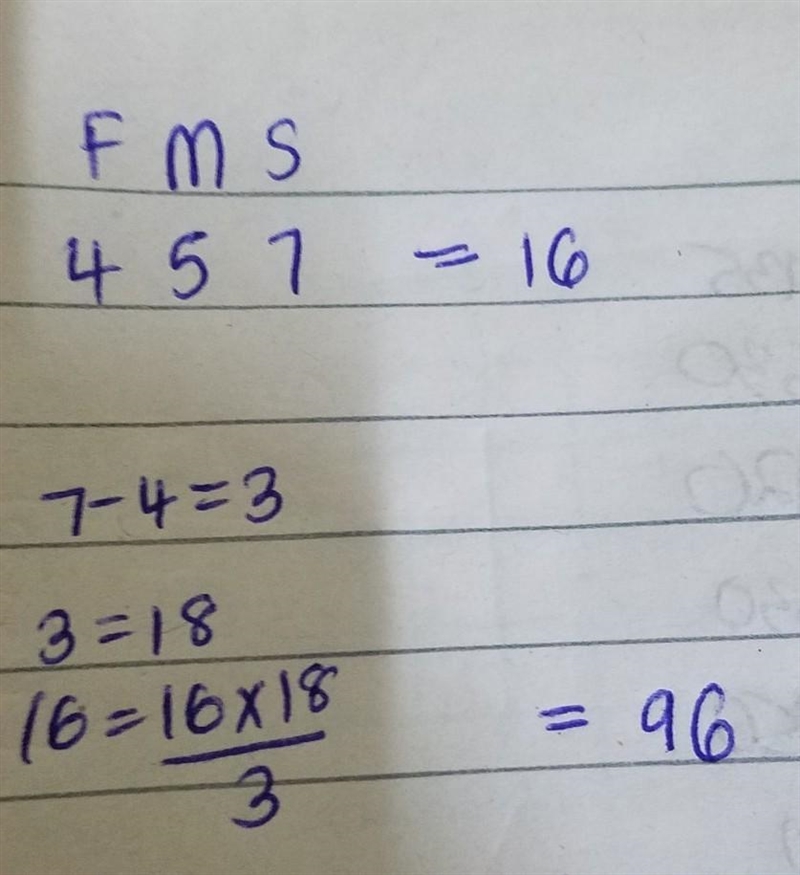 F M S
4 5 7 = 16
7-4=3
3=18
16=16x18/3 = 96